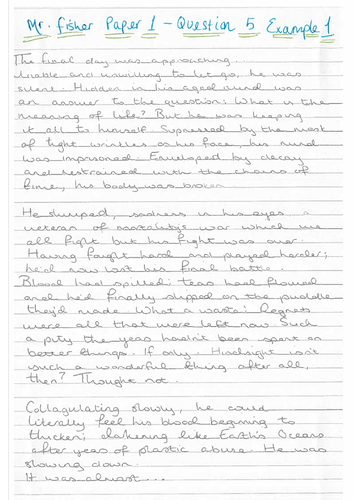 Mr. Fisher Paper 1 - Question 5 Example 1
The final day was approaching.
Liable and unwilling to let go, he was
silent. Hidden in his aged mind was
an answer to the question: What is the
meaning of life? But he was keeping
it all to himself. Supressed by the mask
of tight wrinkles on his face, his mind
was imprisoned. Enveloped by decay
and restrained with the chains of
time, his body was broken.
He slumped, sadness in his eyes, a
veteran of war which we
all fight but his fight was over.
Having fought hard and played harder;
he'd now lost his final battle.
Blood had spilled; tears had flowed
and he'd finally slipped on the puddle
they'd made. What a waste! Regrets
were all that were left now. Such
a pity the years hadn't been spent on
better things. If only. Hindsight isn't
such a wonderful thing after all,
then? Thought not.
Collagulating slowly, he could
literally feel his blood beginning to
thicken; clattering like Earth's Oceans
after years of plastic abuse. He was
slowing down.
It was almost...